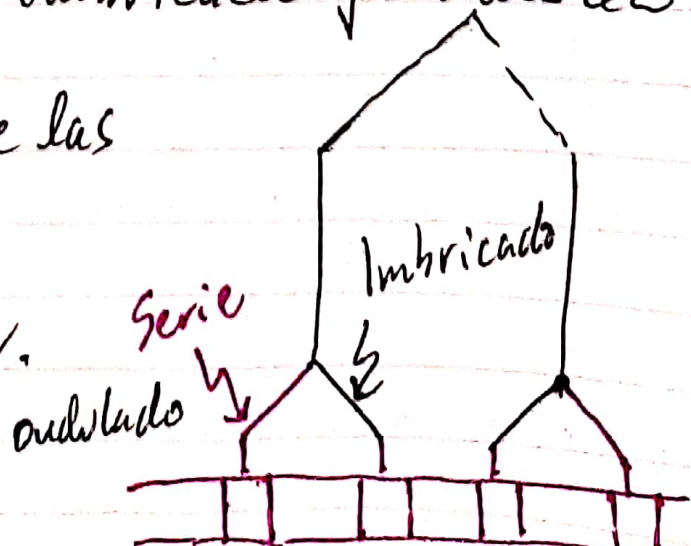 e las
Imbricado
Serie
ondulado